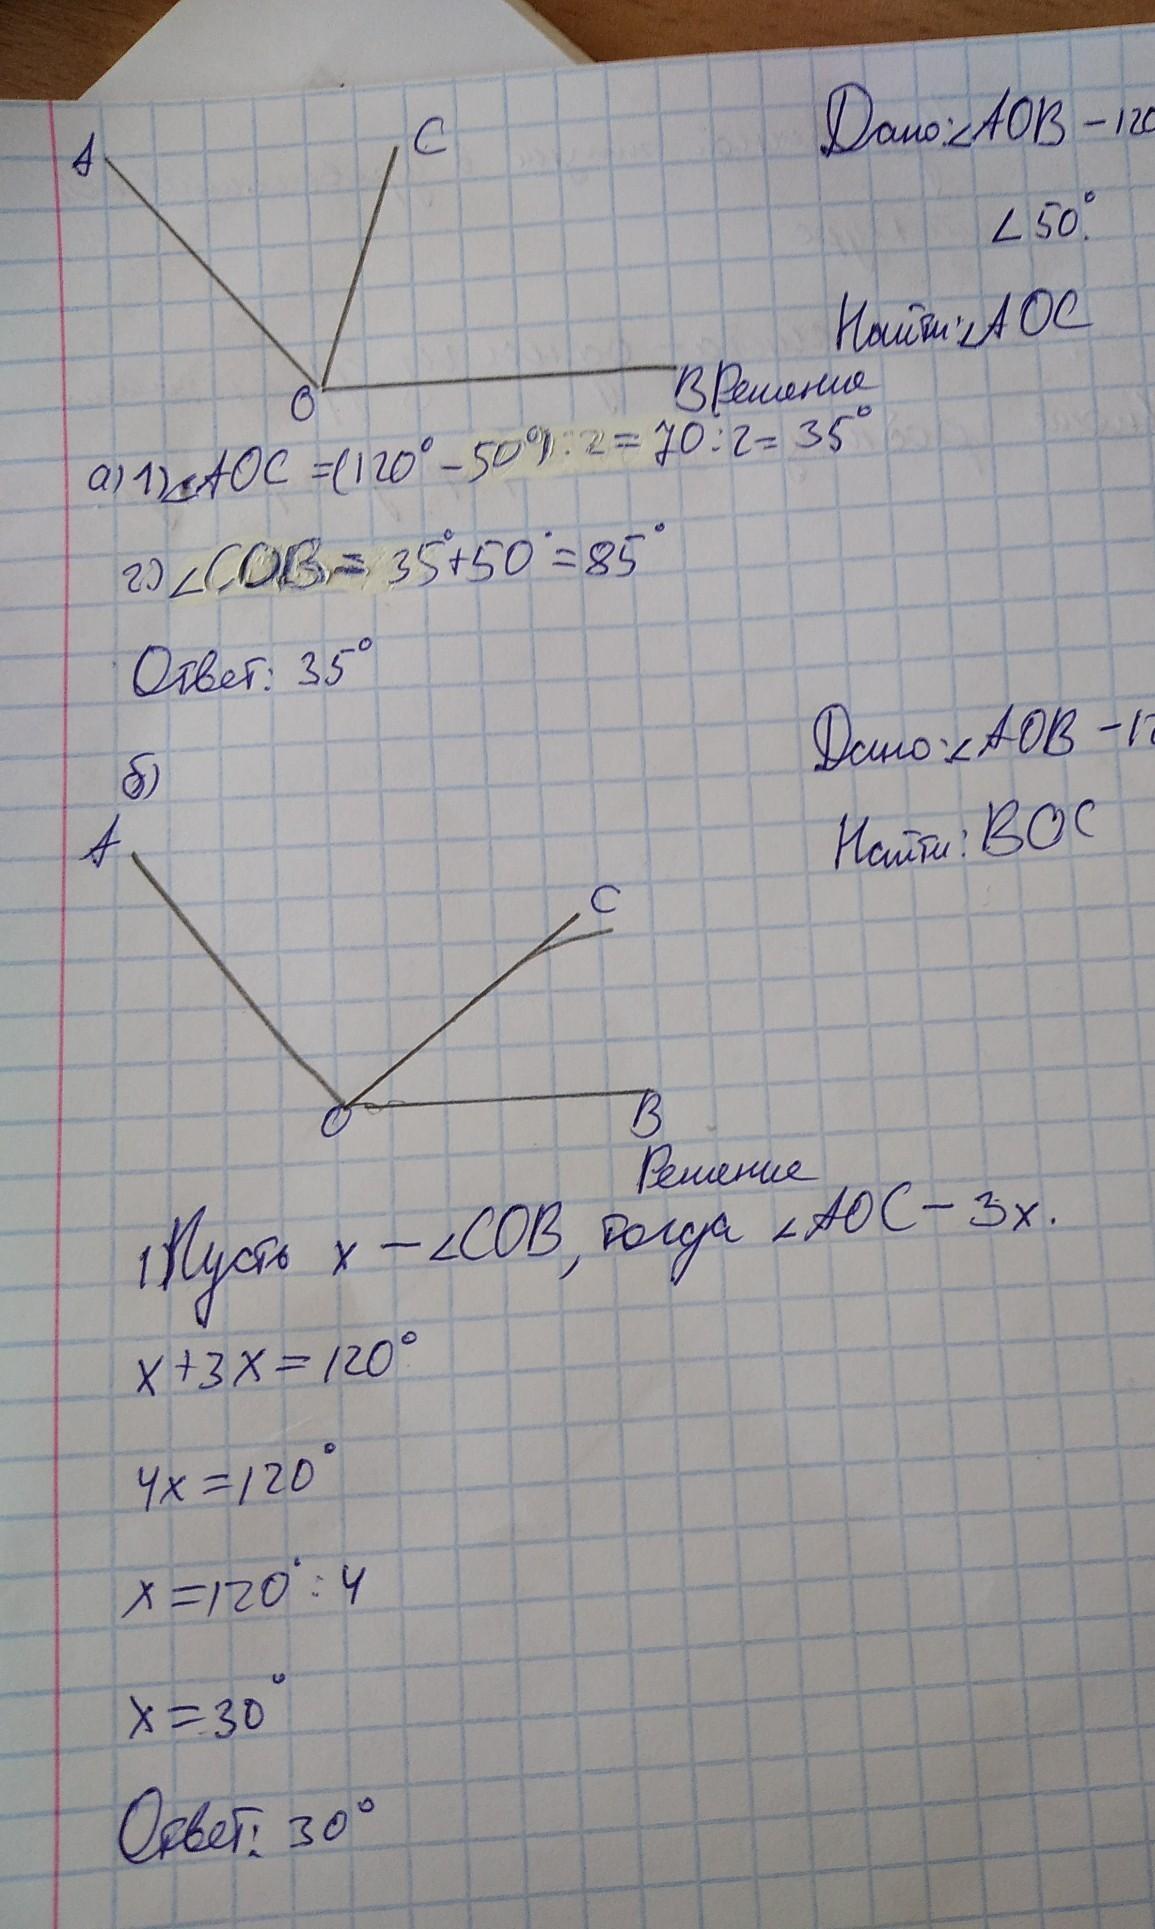 A
C
Дано: ∠AOB - 120
∠50°.
Найти: ∠AOC
O
B
Решение
а) 1) ∠AOC = (120° - 50°) : 2 = 70 : 2 = 35°
2) ∠COB = 35° + 50° = 85°
Ответ: 35°
б)
Дано: ∠AOB - 12
Найти: BOC
A
C
O
B
Решение
1) Пусть x - ∠COB, тогда ∠AOC - 3x.
x + 3x = 120°
4x = 120°
x = 120° : 4
x = 30°
Ответ: 30°